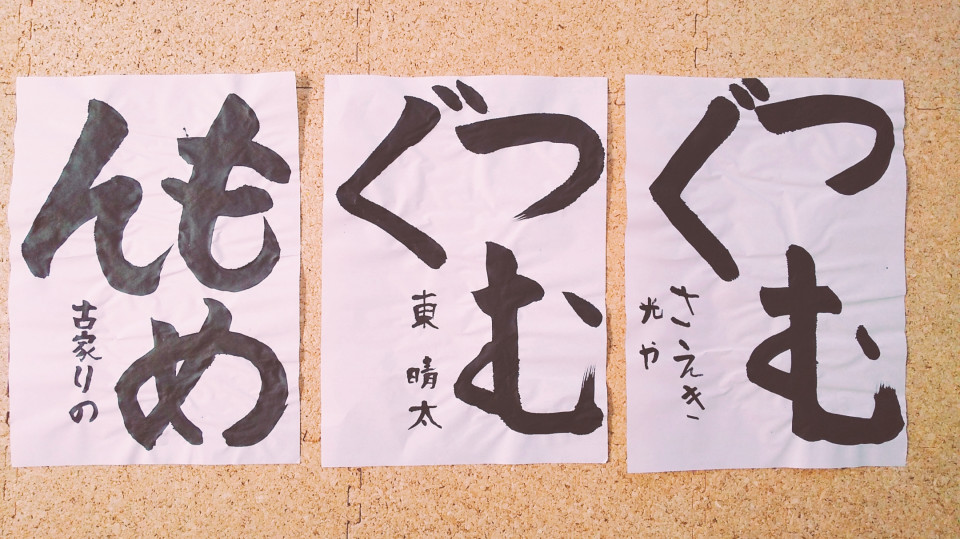 つむ
ぐ
さえき
光や
つむ
ぐ
東 晴太
もめ
ん
古家りの